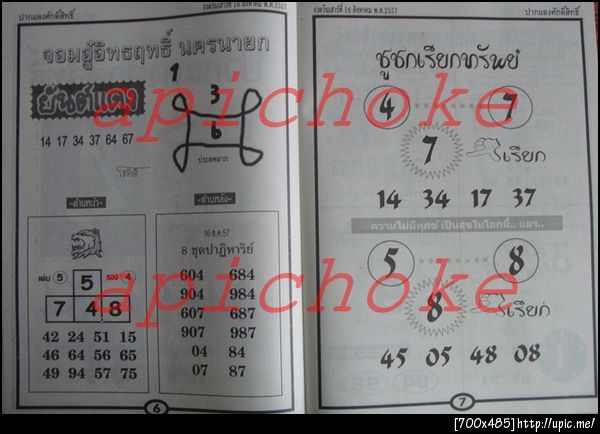 ปากแดงศักดิ์สิทธิ์
งวดวันเสาร์ที่ 16 สิงหาคม พ.ศ.2557
จอมอู๋อิทธฤทธิ์ นครนายก
ยันต์แดง
14 17 34 37 64 67
1
3
6
ประสพลาภ
โชคดี
-ตำบหน้า-
เด่น 5
5
รอง 4
7 4 8
42 24 51 15
46 64 56 65
49 94 57 75
-ตำบหลัง-
16 ส.ค.57
8 ชุดปาฏิหาริย์
604 684
904 984
607 687
907 987
04 84
07 87
6
งวดวันเสาร์ที่ 16 สิงหาคม พ.ศ.2557
ปากแดงศักดิ์สิทธิ์
ชูชกเรียกทรัพย์
4 7
7 เรียก
14 34 17 37
ความไม่มีทุกข์ เป็นสุขในโลกนี้.. แลฯ..
5 8
8 เรียก
45 05 48 08
7
apichoke
apichoke
apichoke
[700x485]http://upic.me/